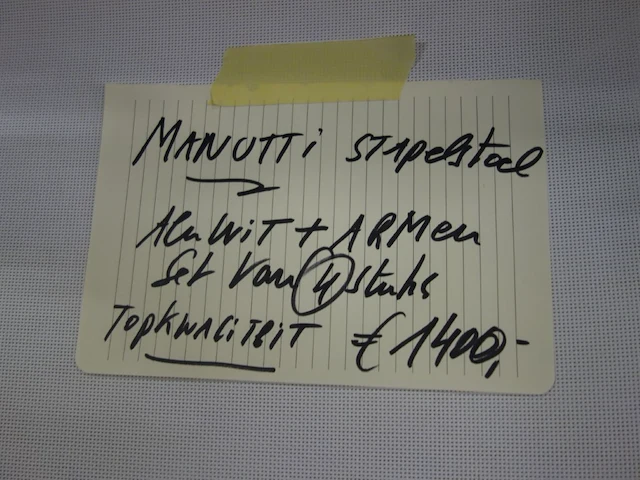 MANUTTI STAPelstoel
Alu WiT + ARMen
Set Van 4 stuks
TOPKWALITEIT € 1400,-